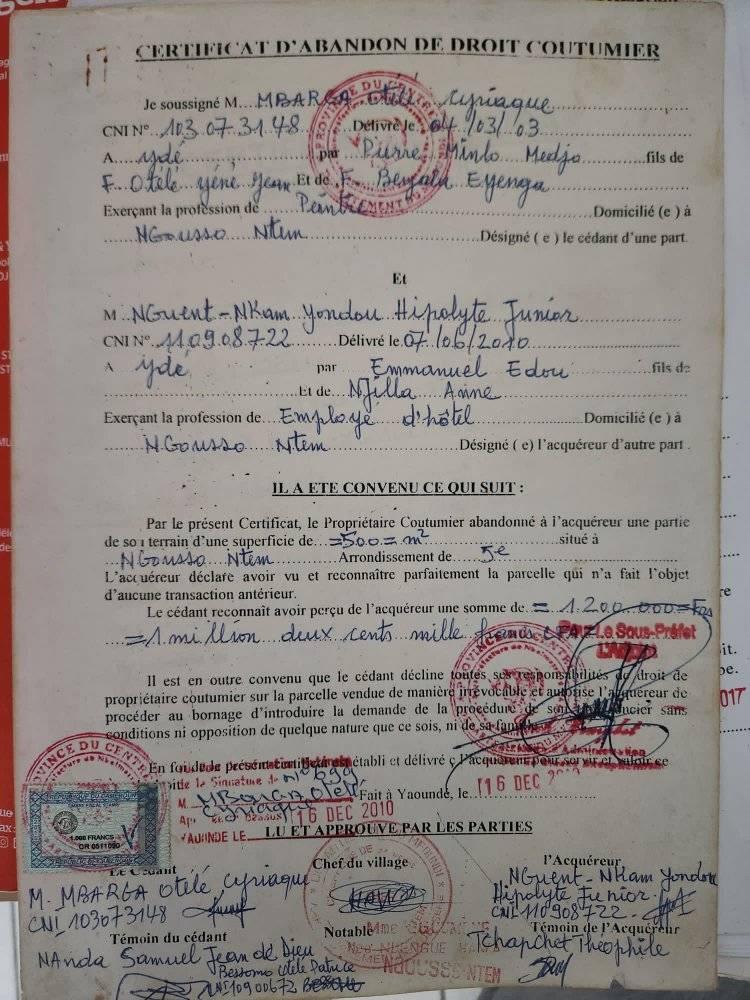 CERTIFICAT D'ABANDON DE DROIT COUTUMIER
Je soussigné M... MBARGA Otélé Cyriaque
CNI N° 103.07.31.48 Délivré le 04/03/03
A ydé par Pierre Minlo Medjo fils de
F. Otélé yéné Jean Et de F. Benjala Eyenga
Exerçant la profession de Peintre Domicilié (e) à
NGousso Ntem Désigné ( e ) le cédant d'une part.
Et
M NGuent-NKam Yondou Hipolyte Junior
CNI N° 11.09.08.7.22 Délivré le 07/06/2010
A ydé par Emmanuel Edou fils de
Et de Njilla Anne
Exerçant la profession de Employé d'hôtel Domicilié (e ) à
NGousso Ntem Désigné ( e) l'acquéreur d'autre part .
IL A ETE CONVENU CE QUI SUIT :
Par le présent Certificat, le Propriétaire Coutumier abandonné à l'acquéreur une partie
de son terrain d'une superficie de =500= m² situé à
NGousso Ntem Arrondissement de 5e
L'acquéreur déclare avoir vu et reconnaître parfaitement la parcelle qui n'a fait l'objet
d'aucune transaction antérieur.
Le cédant reconnaît avoir perçu de l'acquéreur une somme de = 1.200.000= Fcfa
= 1 million deux cents mille francs CFA =
Le Sous-Préfet
Il est en outre convenu que le cédant décline toutes ses responsabilités de droit de
propriétaire coutumier sur la parcelle vendue de manière irrévocable et autorise l'acquéreur de
procéder au bornage d'introduire la demande de la procédure de son foncier sans
conditions ni opposition de quelque nature que ce sois, ni de sa famille
En foi de le présent établi et délivré l'acquéreur pour servir et valoir ce
PROVINCE DU CENTRE
de la Signature de N° 699
M. MBarga Otélé
Cyriaque
Fait à Yaoundé, le 16 DEC
16 DEC 2010
YAOUNDE LE
1.000 FRANCS
LU ET APPROUVE PAR LES PARTIES
Le Cédant Chef du village l'Acquéreur
M. MBARGA Otélé Cyriaque
CNI 103073148
NGuent-NKam Yondou
Hipolyte Junior
CNI 110908722
Témoin du cédant Notable Témoin de l'Acquéreur
NAnda Samuel Jean de Dieu
Tchapchet Théophile
NGOUSSO-NTEM
2017